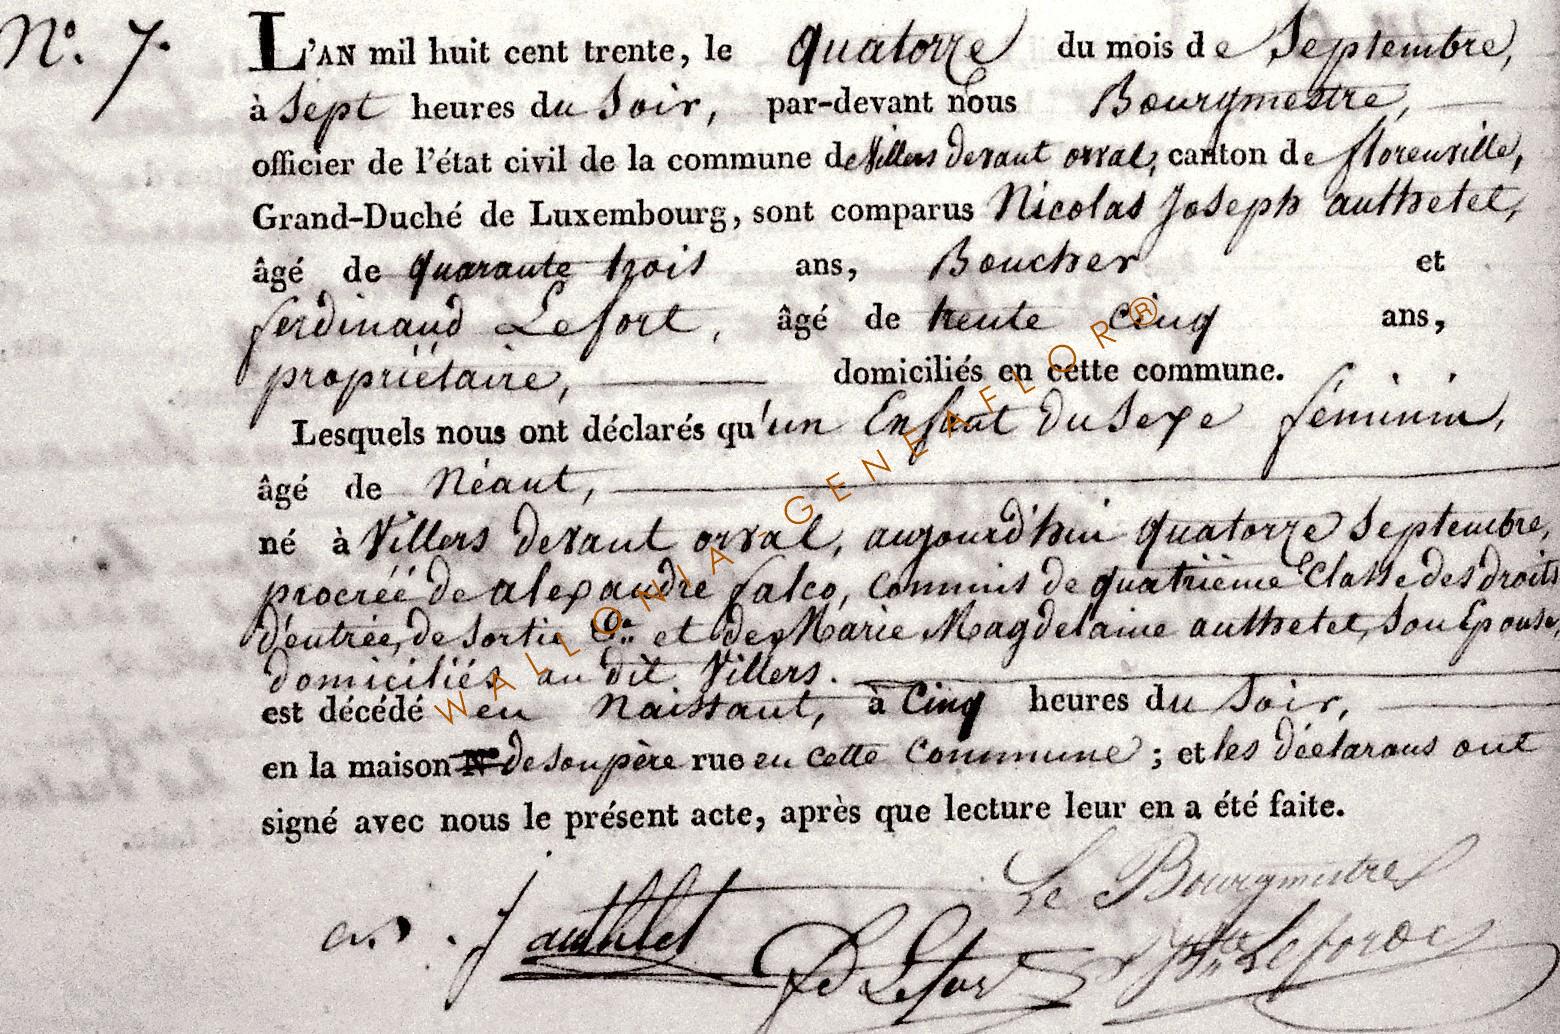 N.º 7.
L'AN mil huit cent trente, le quatorze du mois de Septembre,
à Sept heures du Soir, par-devant nous Bourgmestre,
officier de l'état civil de la commune de Villers devant orval, canton de florenville,
Grand-Duché de Luxembourg, sont comparus Nicolas Joseph authelet,
âgé de quarante trois ans, Boucher et
ferdinand Lefort, âgé de trente cinq ans,
propriétaire, domiciliés en cette commune.
Lesquels nous ont déclarés qu'un Enfant du Sexe féminin,
âgé de Néant,
né à Villers devant orval, aujourd'hui quatorze Septembre,
procréé de alexandre falco, commis de quatrième Classe des droits
d'entrée, de Sortie &a et de Marie Magdelaine authelet, Son Epouse,
domiciliés au dit Villers.
est décédé en Naissant, à Cinq heures du Soir,
en la maison N.º de son père rue en cette Commune ; et les déclarans ont
signé avec nous le présent acte, après que lecture leur en a été faite.
Le Bourgmestre
authelet
Lefort
WALLONIA-GENEAFLOR®